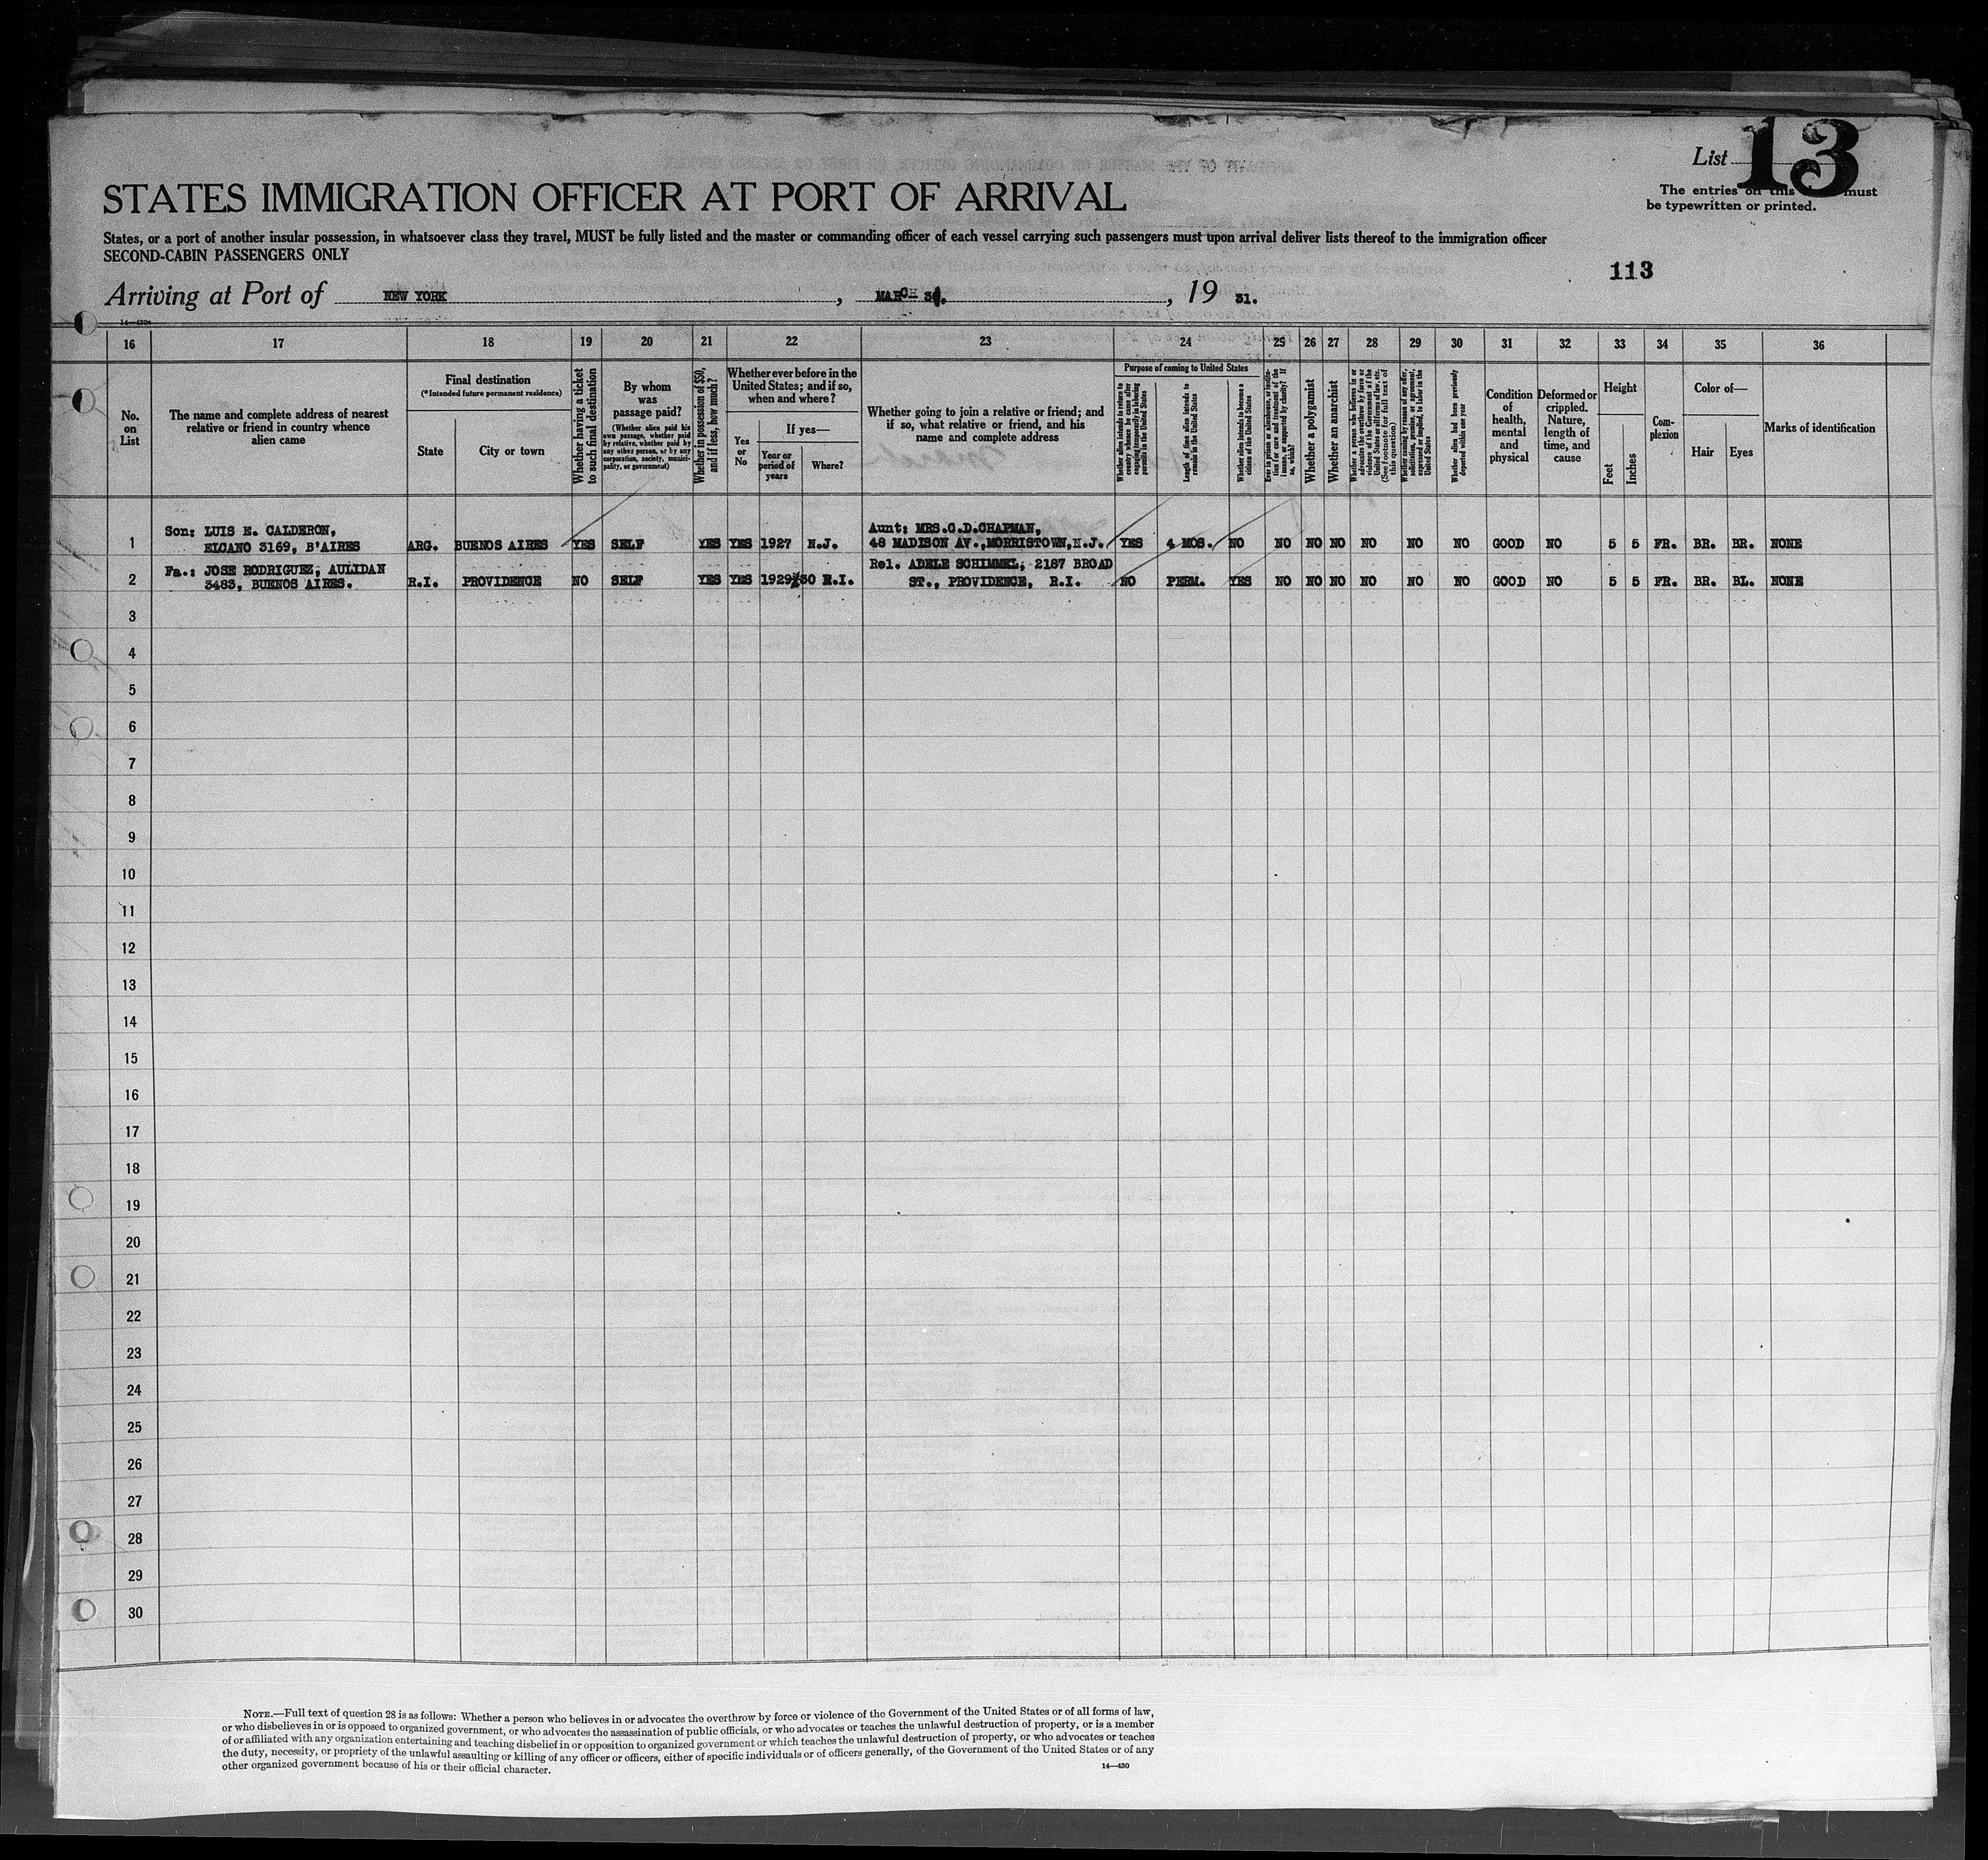 List 13
The entries on this must
be typewritten or printed.
STATES IMMIGRATION OFFICER AT PORT OF ARRIVAL
States, or a port of another insular possession, in whatsoever class they travel, MUST be fully listed and the master or commanding officer of each vessel carrying such passengers must upon arrival deliver lists thereof to the immigration officer
SECOND-CABIN PASSENGERS ONLY
113
Arriving at Port of NEW YORK, MARCH, 19 31.
16 17 18 19 20 21 22 23 24 25 26 27 28 29 30 31 32 33 34 35 36
No. on List
The name and complete address of nearest relative or friend in country whence alien came
Final destination
(*Intended future permanent residence)
State
City or town
Whether having a ticket to such final destination
By whom was passage paid?
(Whether alien paid his own passage, whether paid by relative, whether paid by any other person, or by any corporation, society, municipality, or government)
Whether in possession of $50, and if less, how much?
Whether ever before in the United States; and if so, when and where?
Yes or No
If yes—
Year or period of years
Where?
Whether going to join a relative or friend; and if so, what relative or friend, and his name and complete address
Purpose of coming to United States
Length of time alien intends to remain in the United States
Whether alien intends to become a citizen of the United States
Whether a polygamist
Whether an anarchist
Whether alien had been previously deported within one year
Condition of health, mental and physical
Deformed or crippled. Nature, length of time, and cause
Height
Feet
Inches
Complexion
Color of—
Hair
Eyes
Marks of identification
1 Son: LUIS E. CALDERON, ELCANO 3169, B'AIRES ARG. BUENOS AIRES YES SELF YES YES 1927 N.J. Aunt: MRS.C.D.CHAPMAN, 48 MADISON AV.,MORRISTOWN,N.J. YES 4 MOS. NO NO NO NO NO NO NO GOOD NO 5 5 FR. BR. BR. NONE
2 Fa.: JOSE RODRIGUEZ, AULIDAN 3483, BUENOS AIRES. R.I. PROVIDENCE NO SELF YES YES 1929/30 R.I. Rel. ADELE SCHIMMEL, 2187 BROAD ST., PROVIDENCE, R.I. NO PERM. YES NO NO NO NO NO NO GOOD NO 5 5 FR. BR. BL. NONE
3
4
5
6
7
8
9
10
11
12
13
14
15
16
17
18
19
20
21
22
23
24
25
26
27
28
29
30
NOTE.—Full text of question 28 is as follows: Whether a person who believes in or advocates the overthrow by force or violence of the Government of the United States or of all forms of law,
or who disbelieves in or is opposed to organized government, or who advocates the assassination of public officials, or who advocates or teaches the unlawful destruction of property, or is a member
of or affiliated with any organization entertaining and teaching disbelief in or opposition to organized government or which teaches the unlawful destruction of property, or who advocates or teaches
the duty, necessity, or propriety of the unlawful assaulting or killing of any officer or officers, either of specific individuals or of officers generally, of the Government of the United States or of any
other organized government because of his or their official character.
14—430